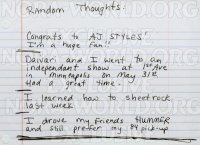 Random Thoughts.
Congrats to AJ STYLES!
I'm a huge fan!!
Daivari and I went to an
independant show at 1st Ave
in Minneapolis on May 31st.
Had a great time.
I learned how to sheetrock
last week
I drove my friends HUMMER
and still prefer my pick-up